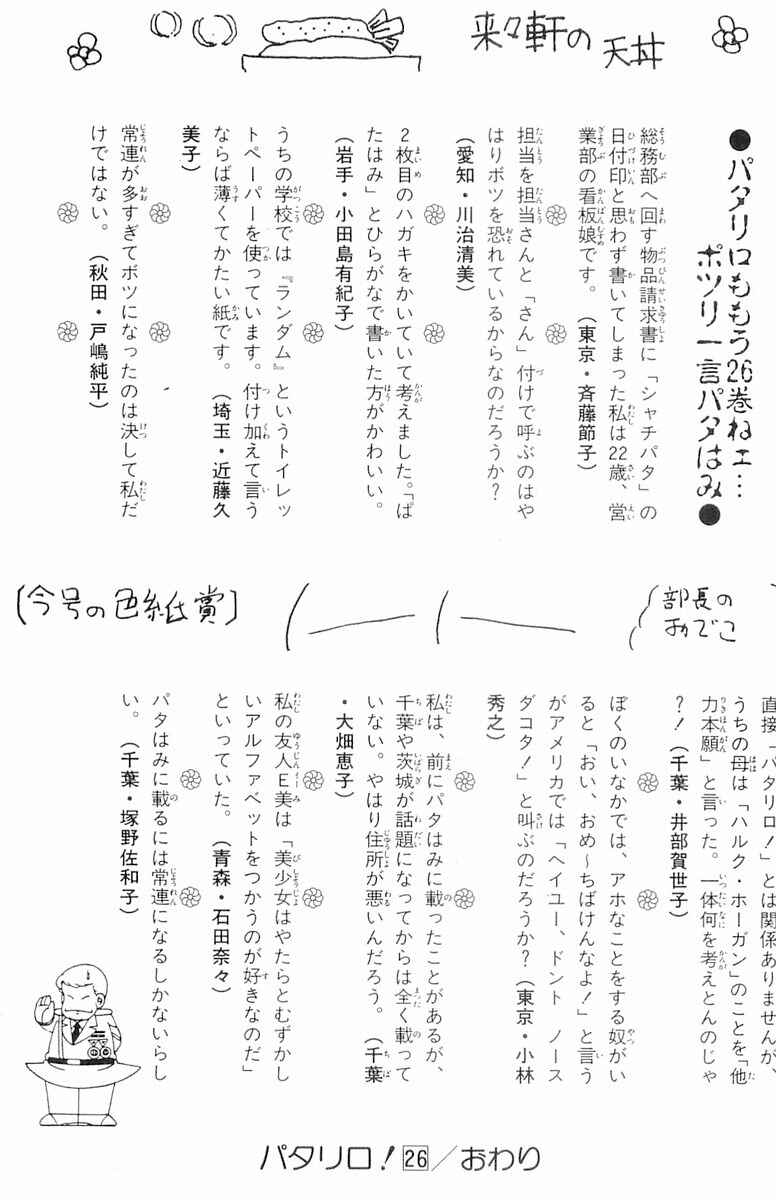 来々軒の
天丼
●パタリロももう26巻ねェ…
ポツリ一言パタはみ●
総務部へ回す物品請求書に「シャチパタ」の
日付印と思わず書いてしまった私は22歳、営
業部の看板娘です。　（東京・斉藤節子）
担当を担当さんと「さん」付けで呼ぶのはや
はりボツを恐れているからなのだろうか？
（愛知・川治清美）
２枚目のハガキをかいていて考えました。「ぱ
たはみ」とひらがなで書いた方がかわいい。
（岩手・小田島有紀子）
うちの学校では『ランダム』というトイレッ
トペーパーを使っています。付け加えて言う
ならば薄くてかたい紙です。　（埼玉・近藤久
美子）
常連が多すぎてボツになったのは決して私だ
けではない。　（秋田・戸嶋純平）
部長の
おでこ
〔今号の色紙賞〕
直接「パタリロ！」とは関係ありませんが、
うちの母は「ハルク・ホーガン」のことを「他
力本願」と言った。一体何を考えとんのじゃ
？！（千葉・井部賀世子）
ぼくのいなかでは、アホなことをする奴がい
ると「おい、おめ〜ちばけんなよ！」と言う
がアメリカでは「ヘイユー、ドント　ノース
ダコタ！」と叫ぶのだろうか？（東京・小林
秀之）
私は、前にパタはみに載ったことがあるが、
千葉や茨城が話題になってからは全く載って
いない。やはり住所が悪いんだろう。　（千葉
・大畑恵子）
私の友人Ｅ美は「美少女はやたらとむずかし
いアルファベットをつかうのが好きなのだ」
といっていた。　（青森・石田奈々）
パタはみに載るには常連になるしかないらし
い。　（千葉・塚野佐和子）
パタリロ！26／おわり